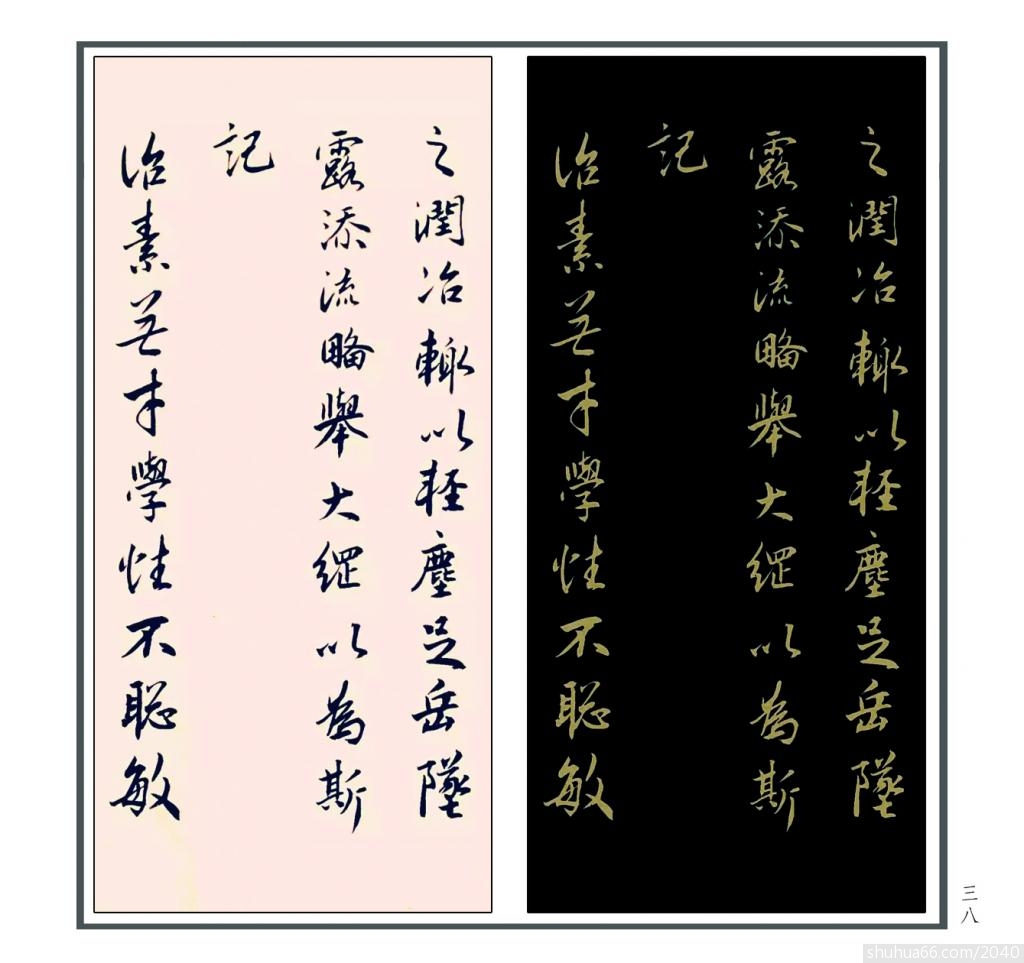 之潤治輒以輕塵足岳墜
露添流略舉大綱以為斯
記
治素無才學性不聰敏
之潤治輒以輕塵足岳墜
露添流略舉大綱以為斯
記
治素無才學性不聰敏
三八
shuhua66.com/2040